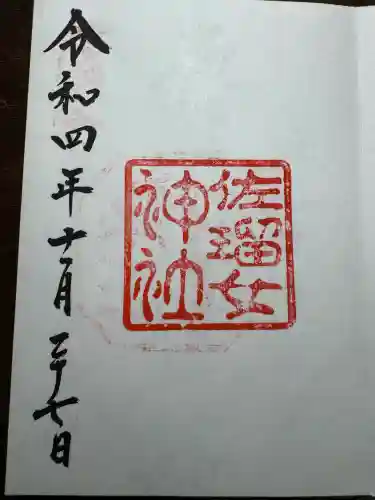 佐瑠女
神社
令和四年十一月二十七日